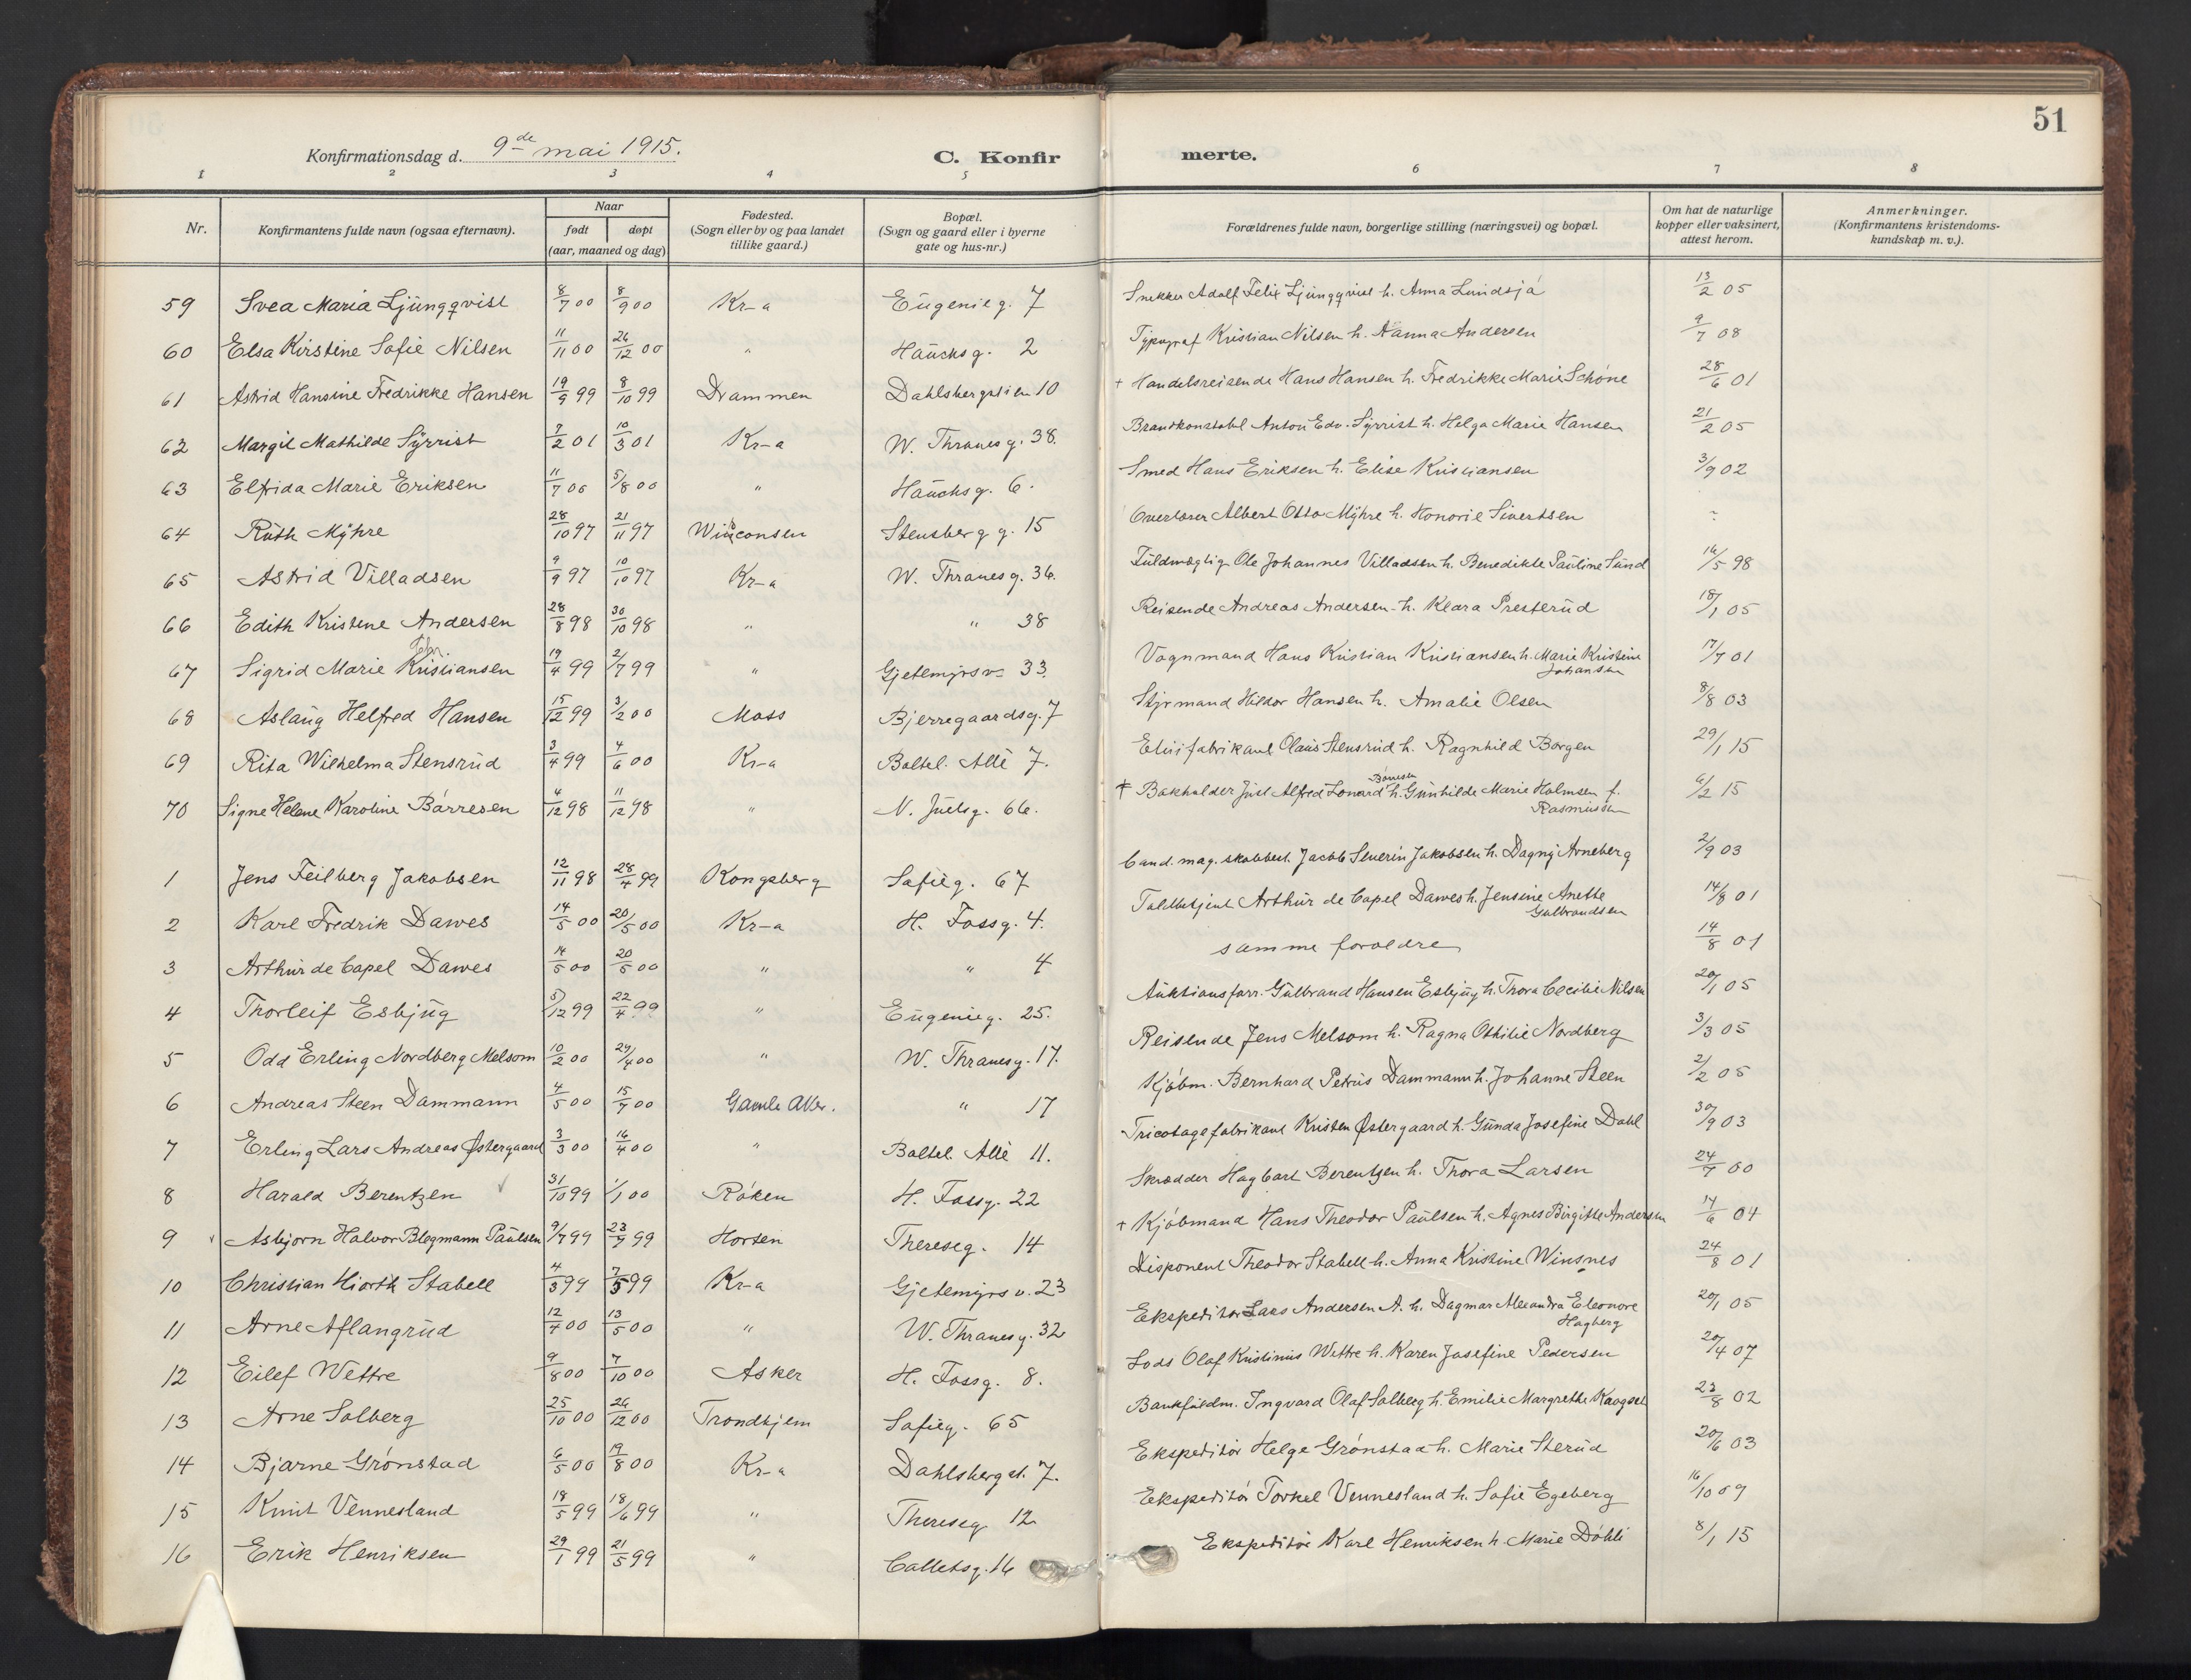 51
Konfirmationsdag d. 9de mai 1915. C. Konfirmerte.
1 2 3 4 5 6 7 8
Nr. Konfirmantens fulde navn (ogsaa efternavn). Naar født døpt (aar, maaned og dag) Fødested. (Sogn eller by og paa landet tillike gaard.) Bopæl. (Sogn og gaard eller i byerne gate og hus-nr.) Forældrenes fulde navn, borgerlige stilling (næringsvei) og bopæl. Om hat de naturlige kopper eller vaksinert, attest herom. Anmerkninger. (Konfirmantens kristendomskundskap m. v.).
59 Svea Maria Ljungqvist 8/7 00 8/9 00 Kr-a Eugenieg. 7 Snekker Adolf Felix Ljungqvist h. Anna Lundsjø 13/2 05
60 Elsa Kirstine Sofie Nilsen 11/11 00 26/12 00 " Hauchsg. 2 Typograf Kristian Nilsen h. Nanna Andersen 9/7 08
61 Astrid Hansine Fredrikke Hansen 19/9 99 8/10 99 Drammen Dahlsbergstien 10 + Handelsreisende Hans Hansen h. Fredrikke Marie Schøne 28/6 01
62 Margit Mathilde Syrrist 7/2 01 10/3 01 Kr-a W. Thranesg. 38. Brandkonstabel Anton Edv. Syrrist h. Helga Marie Hansen 21/2 05
63 Elfrida Marie Eriksen 11/7 00 5/8 00 " Hauchsg. 6. Smed Hans Eriksen h. Elise Kristiansen 3/9 02
64 Ruth Myhre 28/10 97 21/11 97 Wisconsen Stensbergg. 15 Overlærer Albert Otto Myhre h. Honorie Sivertsen
65 Astrid Villadsen 9/9 97 10/10 97 Kr-a W. Thranesg. 36. Fuldmægtig Ole Johannes Villadsen h. Benedikte Pauline Lund 16/5 98
66 Edith Kristene Andersen 28/8 98 30/10 98 " " 38 Reisende Andreas Andersen h. Klara Presterud 18/1 05
67 Sigrid Marie Kristiansen Chr. 19/4 99 2/7 99 " Gjetemyrsv. 33. Vognmand Hans Kristian Kristiansen h. Marie Kristine Johansen 17/7 01
68 Aslaug Helfred Hansen 15/12 99 3/2 00 Moss Bjerregaardsg. 7 Styrmand Hildor Hansen h. Amalie Olsen 8/8 03
69 Rita Wilhelma Stensrud 3/4 99 4/6 00 Kr-a Boltel. Allé 7. Etuifabrikant Olaus Stensrud h. Ragnhild Borgen 29/1 15
70 Signe Helene Karoline Børresen 4/12 98 11/12 98 " N. Juelsg. 66. + Bokholder Just Alfred Lonard Børresen h. Gunhilde Marie Holmsen f. Rasmussen 6/2 15
1 Jens Feilberg Jakobsen 12/11 98 28/4 99 Kongsberg Sofieg. 67 Cand. mag. skolebest. Jacob Severin Jakobsen h. Dagny Arneberg 2/9 03
2 Karl Fredrik Dawes 14/5 00 20/5 00 Kr-a H. Fossg. 4. Toldbetjent Arthur de Capel Dawes h. Jensine Anette Gulbrandsen 14/8 01
3 Arthur de Capel Dawes 14/5 00 20/5 00 " " 4 samme forældre 14/8 01
4 Thorleif Esbjug 5/12 99 22/4 99 " Eugenieg. 25. Auktionsforr. Gulbrand Hansen Esbjug h. Thora Cecilie Nilsen 20/1 05
5 Odd Erling Nordberg Melsom 10/2 00 24/4 00 " W. Thranesg. 17. Reisende Jens Melsom h. Ragna Othilie Nordberg 3/3 05
6 Andreas Steen Dammann 4/5 00 15/7 00 Gamle Aker. " 17 Kjøbm. Bernhard Petrus Dammann h. Johanne Steen 2/2 05
7 Erling Lars Andreas Østergaard 3/3 00 16/4 00 " Boltel. Allé 11. Tricotagefabrikant Kristen Østergaard h. Gunda Josefine Dahl 30/9 03
8 Harald Berentzen 31/10 99 1/1 00 Røken H. Fossg. 22 Skrædder Hagbart Berentzen h. Thora Larsen 24/7 00
9 Asbjørn Halvor Blegmann Paulsen 9/7 99 23/9 99 Horten Thereseg. 14 + Kjøbmand Hans Theodor Paulsen h. Agnes Birgitte Andersen 14/6 04
10 Christian Hiorth Stabell 4/3 99 7/5 99 Kr-a Gjetemyrsv. 23 Disponent Theodor Stabell h. Anna Kristine Winsnes 24/8 01
11 Arne Aflangrud 12/4 00 13/5 00 " W. Thranesg. 32 Ekspeditør Lars Andersen A. h. Dagmar Alexandra Eleonore Hagberg 20/1 05
12 Eilef Wettre 9/8 00 7/10 00 Asker H. Fossg. 8. Lods Olaf Kristinius Wettre h. Karen Josefine Pedersen 20/4 07
13 Arne Solberg 25/10 00 26/12 00 Trondhjem Sofieg. 65 Bankfuldm. Ingvard Olaf Solberg h. Emilie Margrethe 23/8 02
14 Bjarne Grønstad 6/5 00 19/8 00 Kr-a Dahlsbergst. 7. Ekspeditør Helge Grønstad h. Marie Sterud 20/6 03
15 Knut Vennesland 18/5 99 18/6 99 " Thereseg. 12 Ekspeditør Torkel Vennesland h. Sofie Egeberg 16/10 09
16 Erik Henriksen 29/1 99 21/5 99 " Calletsg. 16 Ekspeditør Karl Henriksen h. Marie Døhli 8/1 15